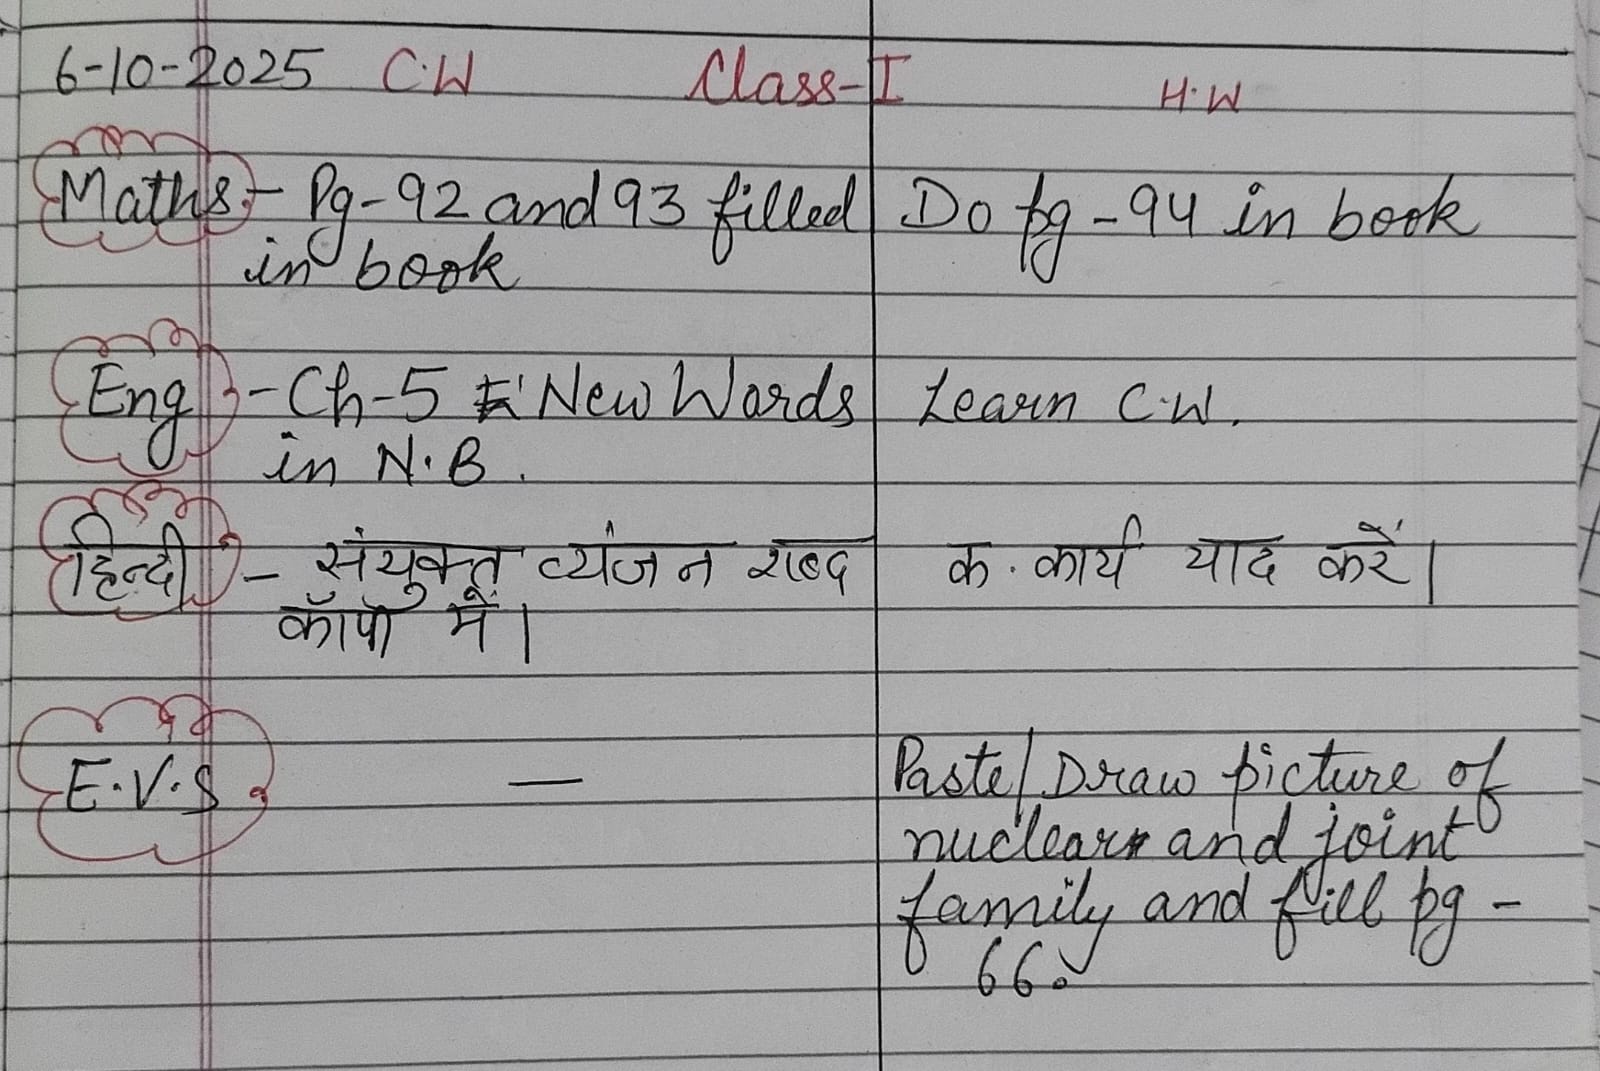 6-10-2025 C.W Class-I H.W
Maths - Pg-92 and 93 filled Do pg-94 in book
in book
Eng - Ch-5 New Words Learn C.W.
in N.B.
हिन्दी - संयुक्त व्यंजन शब्द क. कार्य याद करें।
कॉपी में।
E.V.S — Paste/Draw picture of
nuclear and joint
family and fill pg -
66.